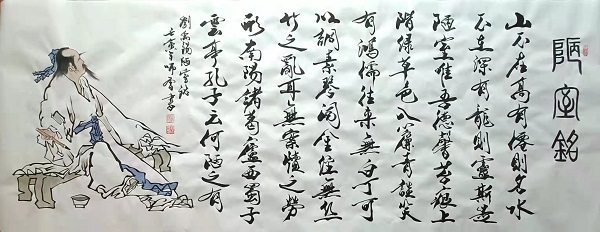 陋室銘
山不在高有僊則名水
不在深有龍則靈斯是
陋室唯吾德馨苔痕上
階綠草色入簾青談笑
有鴻儒往來無白丁可
以調素琴閱金經無絲
竹之亂耳無案牘之勞
形南陽諸葛廬西蜀子
雲亭孔子云何陋之有
劉禹錫陋室銘
壬寅年書